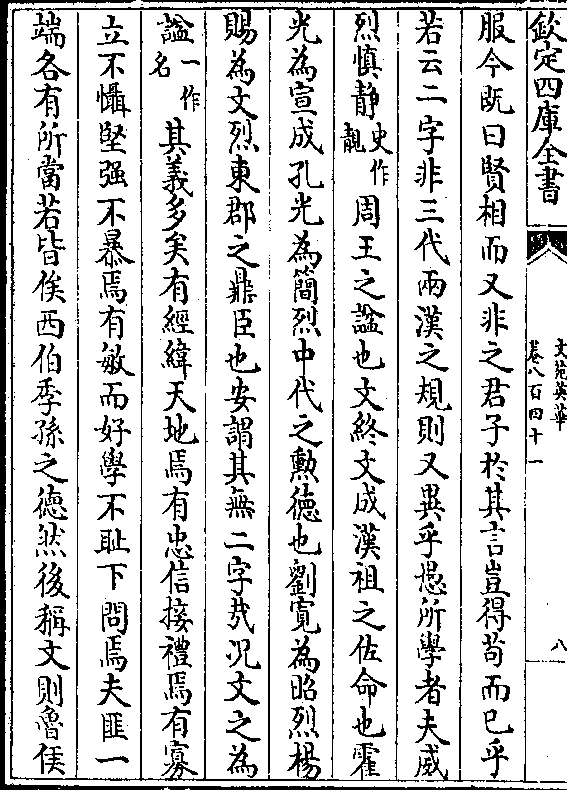 欽定四庫全書
文苑英華
卷八百四十一
八
服今既曰賢相而又非之君子於其言豈得苟而已乎
若云二字非三代兩漢之規則又異乎愚所學者夫威
烈慎静史作靚周王之諡也文終文成漢祖之佐命也霍
光為宣成孔光為簡烈中代之勲德也劉寛為昭烈楊
賜為文烈東郡之鼎臣也安謂其無二字㢤况文之為
諡一作名其義多矣有經緯天地焉有忠信接禮焉有寡
立不懾堅强不暴焉有敏而好學不耻下問焉夫匪一
端各有所當若皆俟西伯季孫之德然後稱文則魯侯